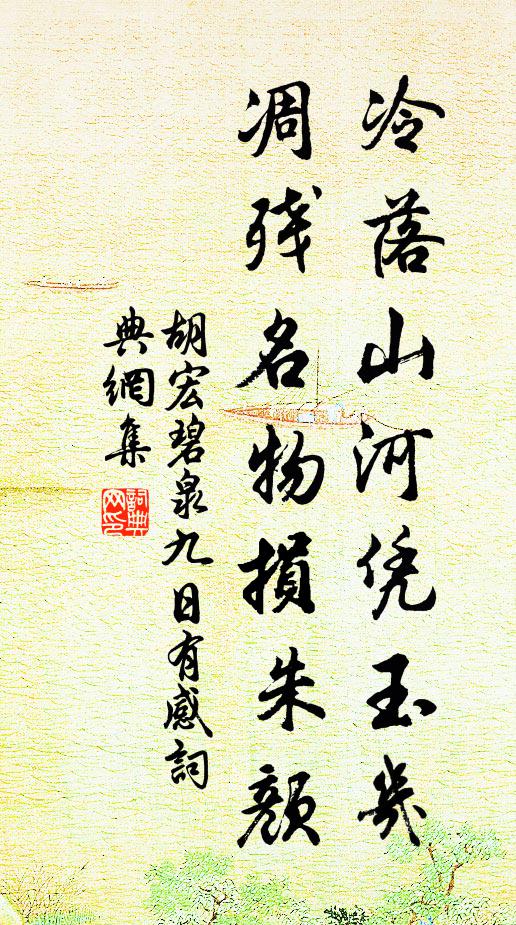 冷落山河凭玉几
凋残名物损朱颜
胡宏碧泉九日有感詞
典網集
詞典网印